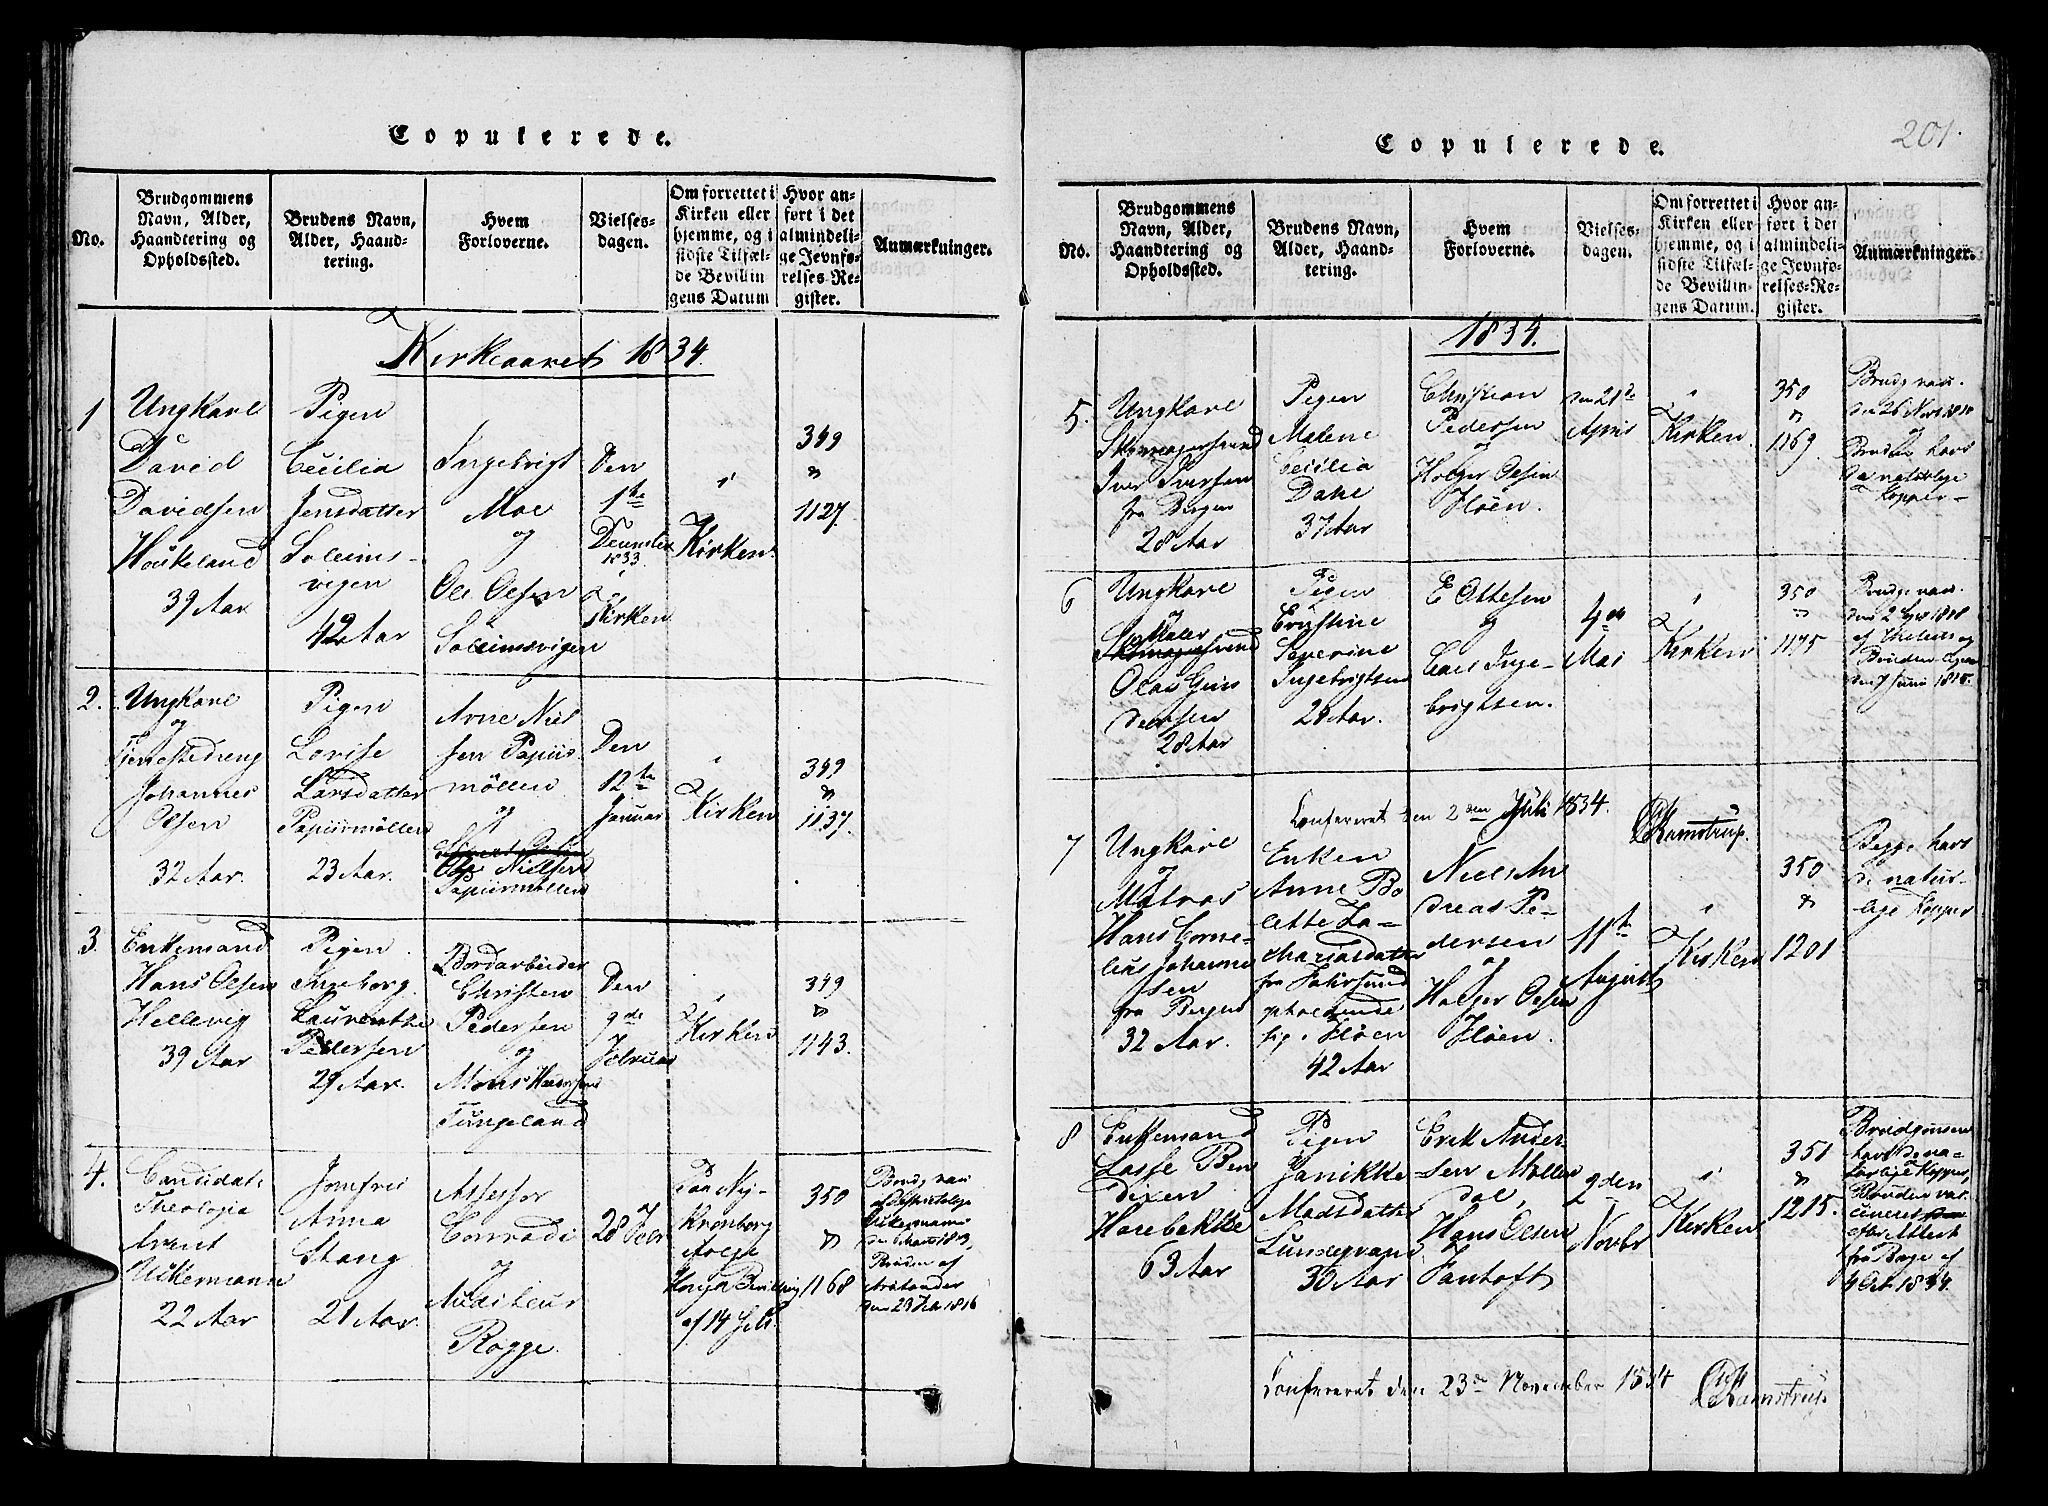 Copulerede.
No.
Brudgommens
Navn, Alder,
Haandtering og
Opholdssted.
Brudens Navn,
Alder, Haand-
tering.
Hvem
Forloverne.
Vielses-
dagen.
Om forrettet i
Kirken eller
hjemme, og i
sidste Tilfæl-
de Bevillin
gens Datum
Hvor an-
ført i det
almindeli-
ge Jevnfø-
relses-Re-
gister.
Anmærkninger.
Kirkeaaret 1834.
1
Ungkarl
David
Davidsen
Houkeland
39 Aar
Pigen
Cecilia
Jensdatter
Soleims-
vigen
42 Aar
Ingebrigt
Moe
og
Ole Olsen
Soleimsvigen
Den
1ste
December
1833
i
Kirken
i
Kirken.
349
1127.
2.
Ungkarl
og
Johannes
Olsen
32 Aar.
Pigen
Lovise
Larsdatter
Papiirmøllen
23 Aar.
Arne Niel
sen Papiir
møllen
og
Ole Nielsen
Papiirmøllen
Den
12te
Januar
i
Kirken
349
1137.
3.
Enkemand
Hans Olsen
Hellevig
39 Aar
Pigen
Ingeborg
Laurentke
Pedersen
29 Aar.
Bordarbeider
Christen
Pedersen
og
Mons
Tungeland
Den
9de
Febru
i
Kirken
349
1143.
4.
Candidat.
Theologia
Arent
Uckermann
22 Aar
Jomfru
Anna
Stang
21 Aar.
Assessor
Conradi
og
Auditeur
Rogge.
28 Febr
Paa Ny-
Kronborg
ifølge
Bevilling
af 14 Feb.
350
1168
Brudg vacc
Uckermann
Bruden af
den 23 1816
Copulerede.
201.
No.
Brudgommens
Navn, Alder,
Haandtering og
Opholdssted.
Brudens Navn,
Alder, Haand-
tering.
Hvem
Forloverne.
Vielses-
dagen.
Om forrettet i
Kirken eller
hjemme, og i
sidste Tilfæl-
de Bevillin-
gens Datum.
Hvor an-
ført i det
almindeli-
ge Jevnfø-
relses-Re-
gister.
Anmærkninger.
1834.
5.
Ungkarl
Skomagersvend
Iver Iversen
fra Bergen
28 Aar
Pigen
Malene
Cecilia
Dahl
37 Aar
Christian
Pedersen
og
Holger Olsen
Fløen.
den 21de
April
i
Kirken.
350
1169.
Brudg vacc.
den 26 Novr 1810
og
Bruden havt
de naturlige
Kopper
6
Ungkarl
og
Maler
Skomagersvend
Olai Gun
dersen
28 Aar
Pigen
Cristine
Severine
Ingebrigtsen
28 Aar.
E Ottesen
og
Carl Inge-
brigtsen.
4de
Mai
i
Kirken
350
1175
Brudg vacc.
den 2 1818
af Thelesen og
Bruden
den 7 Juni 1815.
Confereret den 2den Juli 1834.
Ramstrup.
7
Ungkarl
og
Matros
Hans Corne-
lius Johanne
sen
fra Bergen
32 Aar.
Enken
Anne Bo
lette Za-
chariasdatter
fra Fahrsund
opholdende
sig i Fløen
42 Aar
Niels An
dreas Pe-
dersen
og
Holger Olsen
Fløen.
11te
August
i
Kirken
350
1201
Begge havt
de natur-
lige Kopper
8
Enkemand
Lasse Ben
dixen
Harebakke
63 Aar
Pigen
Janikke
Madsdatter
30 Aar
Erik Ander
sen Møllen
dal,
Hans Olsen
Fantoft
2den
Novbr
i
Kirken
351
1215.
Brudgommen
havt de na-
turlige Kopper,
Bruden vac
cineret
efter Attest
fra Berge af
4 Oct 1834.
Confereret den 23de November 1834
Ramstrup.